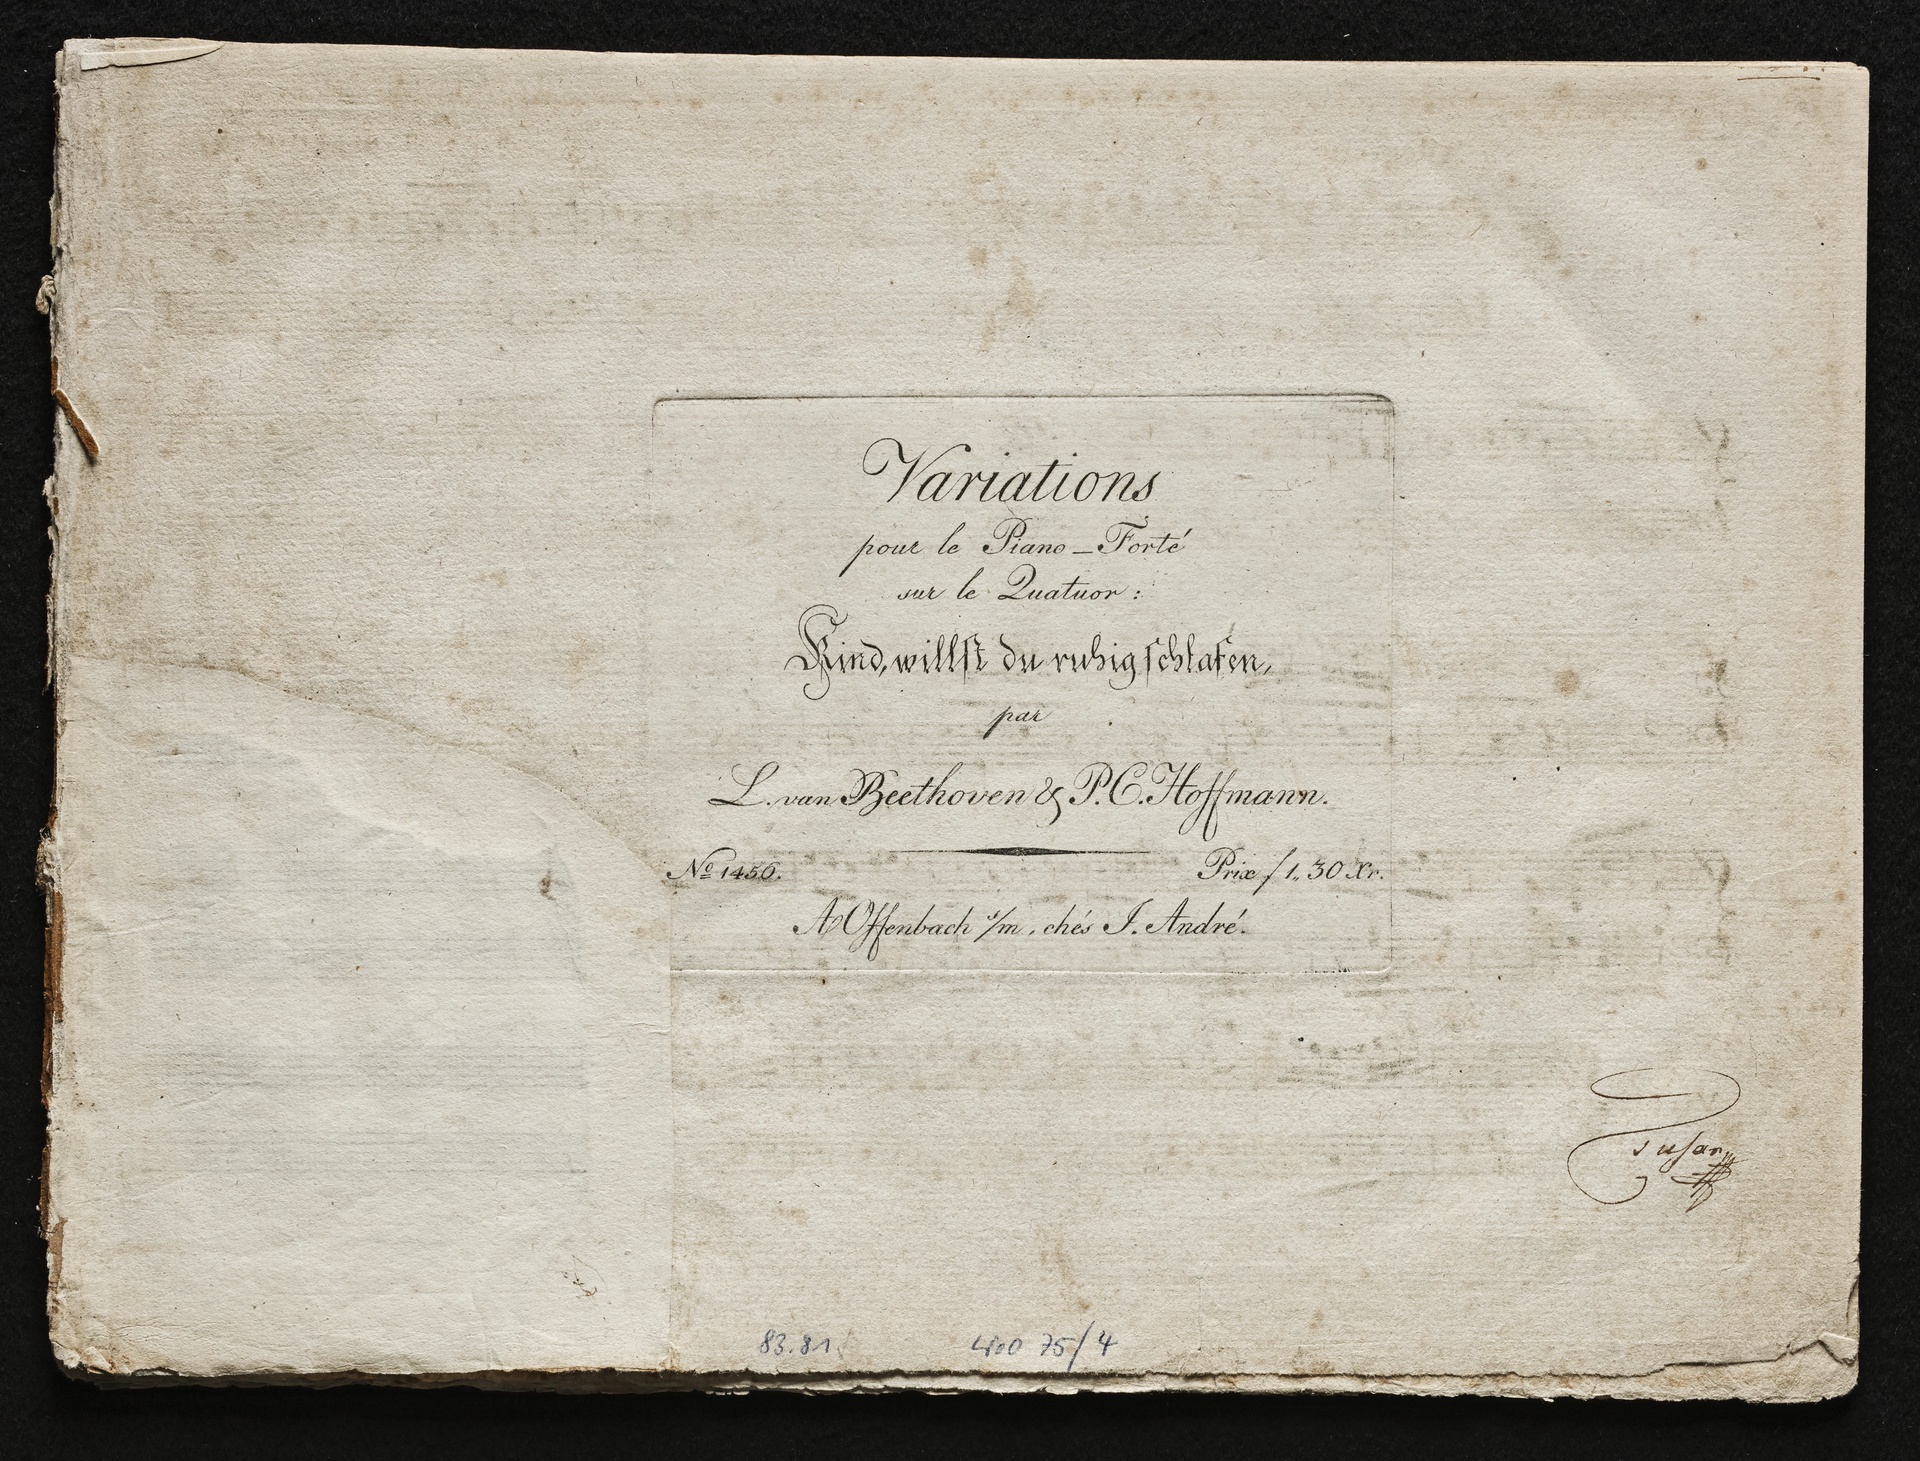 Variations
pour le Piano-Forté
sur le Quatuor:
Kind, willst du ruhig schlafen,
par
L. van Beethoven & P. C. Hoffmann.
No 1456. Prix f 1,, 30 Xr.
A Offenbach s/m, chés J. André.
83.81 400 75/4